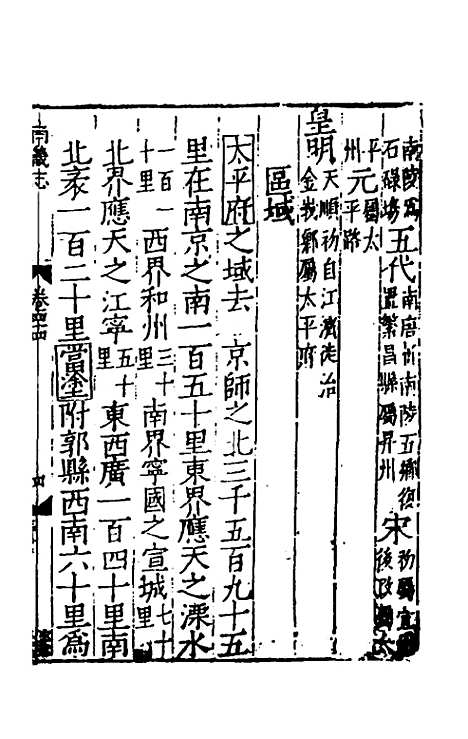 南陵爲石䃮場五代南唐析南陵五鄉復置繁昌縣屬昇州宋初屬宣後改屬太
平州元屬太平路
皇明天順初自江濱徙治金峩鄉屬太平府
區域
太平府之域去 京師之北三千五百九十五
里在南京之南一百五十里東界應天之溧水
一百一十里西界和州三十里南界寧國之宣城七十里
北界應天之江寧五十里東西廣一百四十里南
北袤一百二十里當塗附郭縣西南六十里爲
南畿志 卷四十四